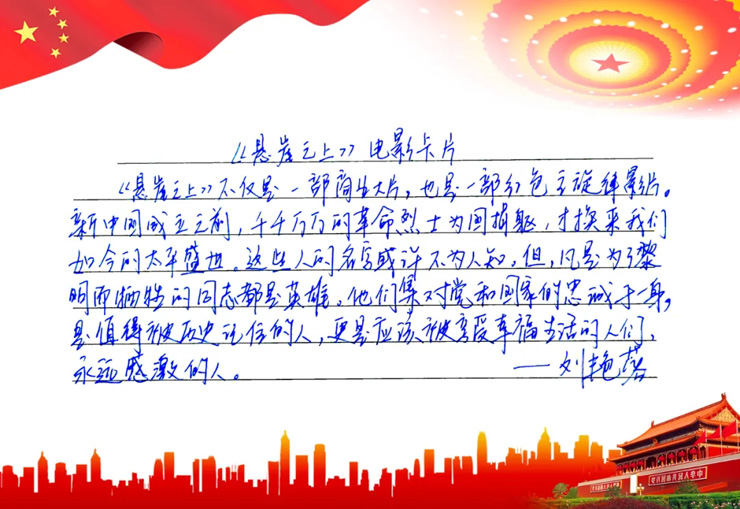 《悬崖之上》电影卡片
《悬崖之上》不仅是一部商业大片，也是一部红色主旋律影片。
新中国成立之前，千千万万的革命烈士为国捐躯，才换来我们
如今的太平盛世。这些人的名字或许不为人知，但，凡是为了黎
明而牺牲的同志都是英雄。他们集对党和国家的忠诚于一身，
是值得被历史记住的人，更是应该被享受幸福生活的人们，
永远感激的人。
——刘艳